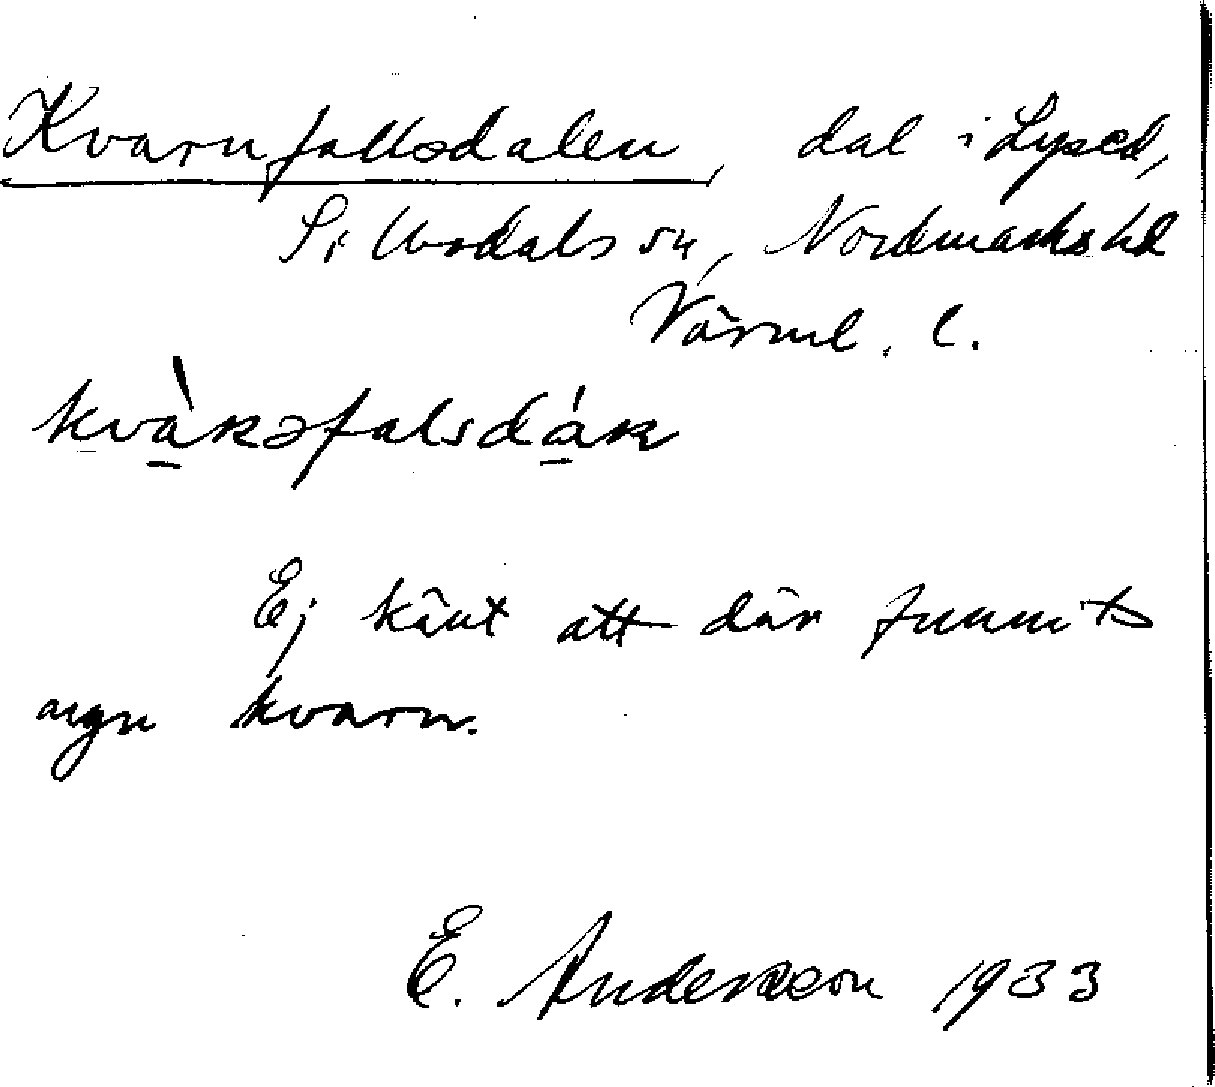 Kvarnfallsdalen, dal i Lysed,
S. Ullvdals sn, Nordmarks hd
Värml. l.
kvàkəfalsdák
Ej känt att där funnits
ngn kvarn.
E. Andersson 1933